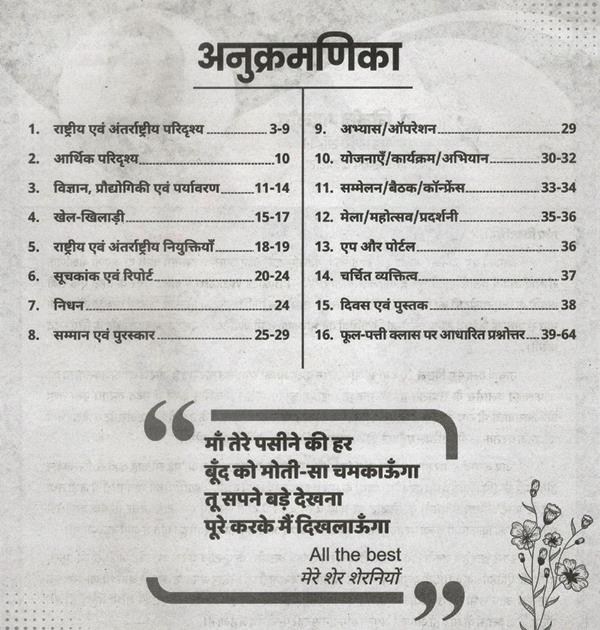 अनुक्रमणिका
1. राष्ट्रीय एवं अंतर्राष्ट्रीय परिदृश्य 3-9
2. आर्थिक परिदृश्य 10
3. विज्ञान, प्रौद्योगिकी एवं पर्यावरण 11-14
4. खेल-खिलाड़ी 15-17
5. राष्ट्रीय एवं अंतर्राष्ट्रीय नियुक्तियाँ 18-19
6. सूचकांक एवं रिपोर्ट 20-24
7. निधन 24
8. सम्मान एवं पुरस्कार 25-29
9. अभ्यास/ऑपरेशन 29
10. योजनाएँ/कार्यक्रम/अभियान 30-32
11. सम्मेलन/बैठक/कॉन्फ्रेंस 33-34
12. मेला/महोत्सव/प्रदर्शनी 35-36
13. एप और पोर्टल 36
14. चर्चित व्यक्तित्व 37
15. दिवस एवं पुस्तक 38
16. फूल-पत्ती क्लास पर आधारित प्रश्नोत्तर 39-64
“माँ तेरे पसीने की हर
बूँद को मोती-सा चमकाऊँगा
तू सपने बड़े देखना
पूरे करके मैं दिखलाऊँगा
All the best
मेरे शेर शेरनियों”